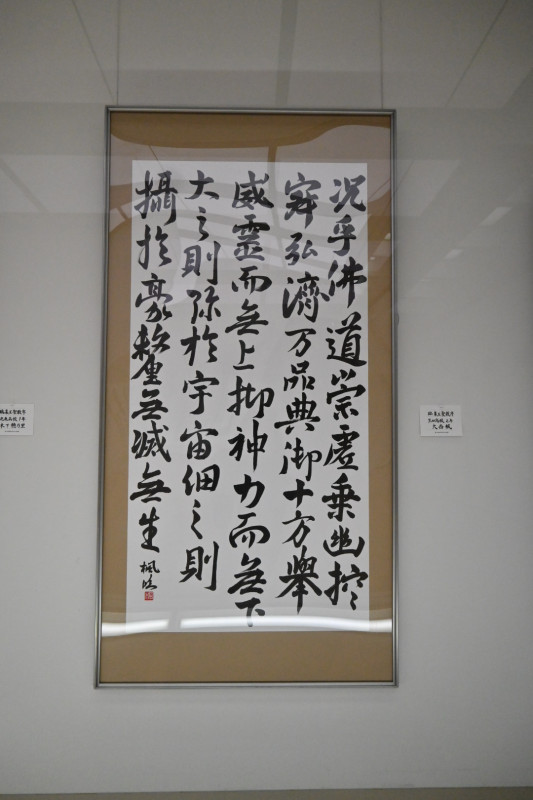 況乎佛道崇虛乘幽控
寂弘濟万品典御十方舉
威靈而無上抑神力而無下
大之則弥於宇宙細之則
攝於豪釐無滅無生
臨 集王聖教序